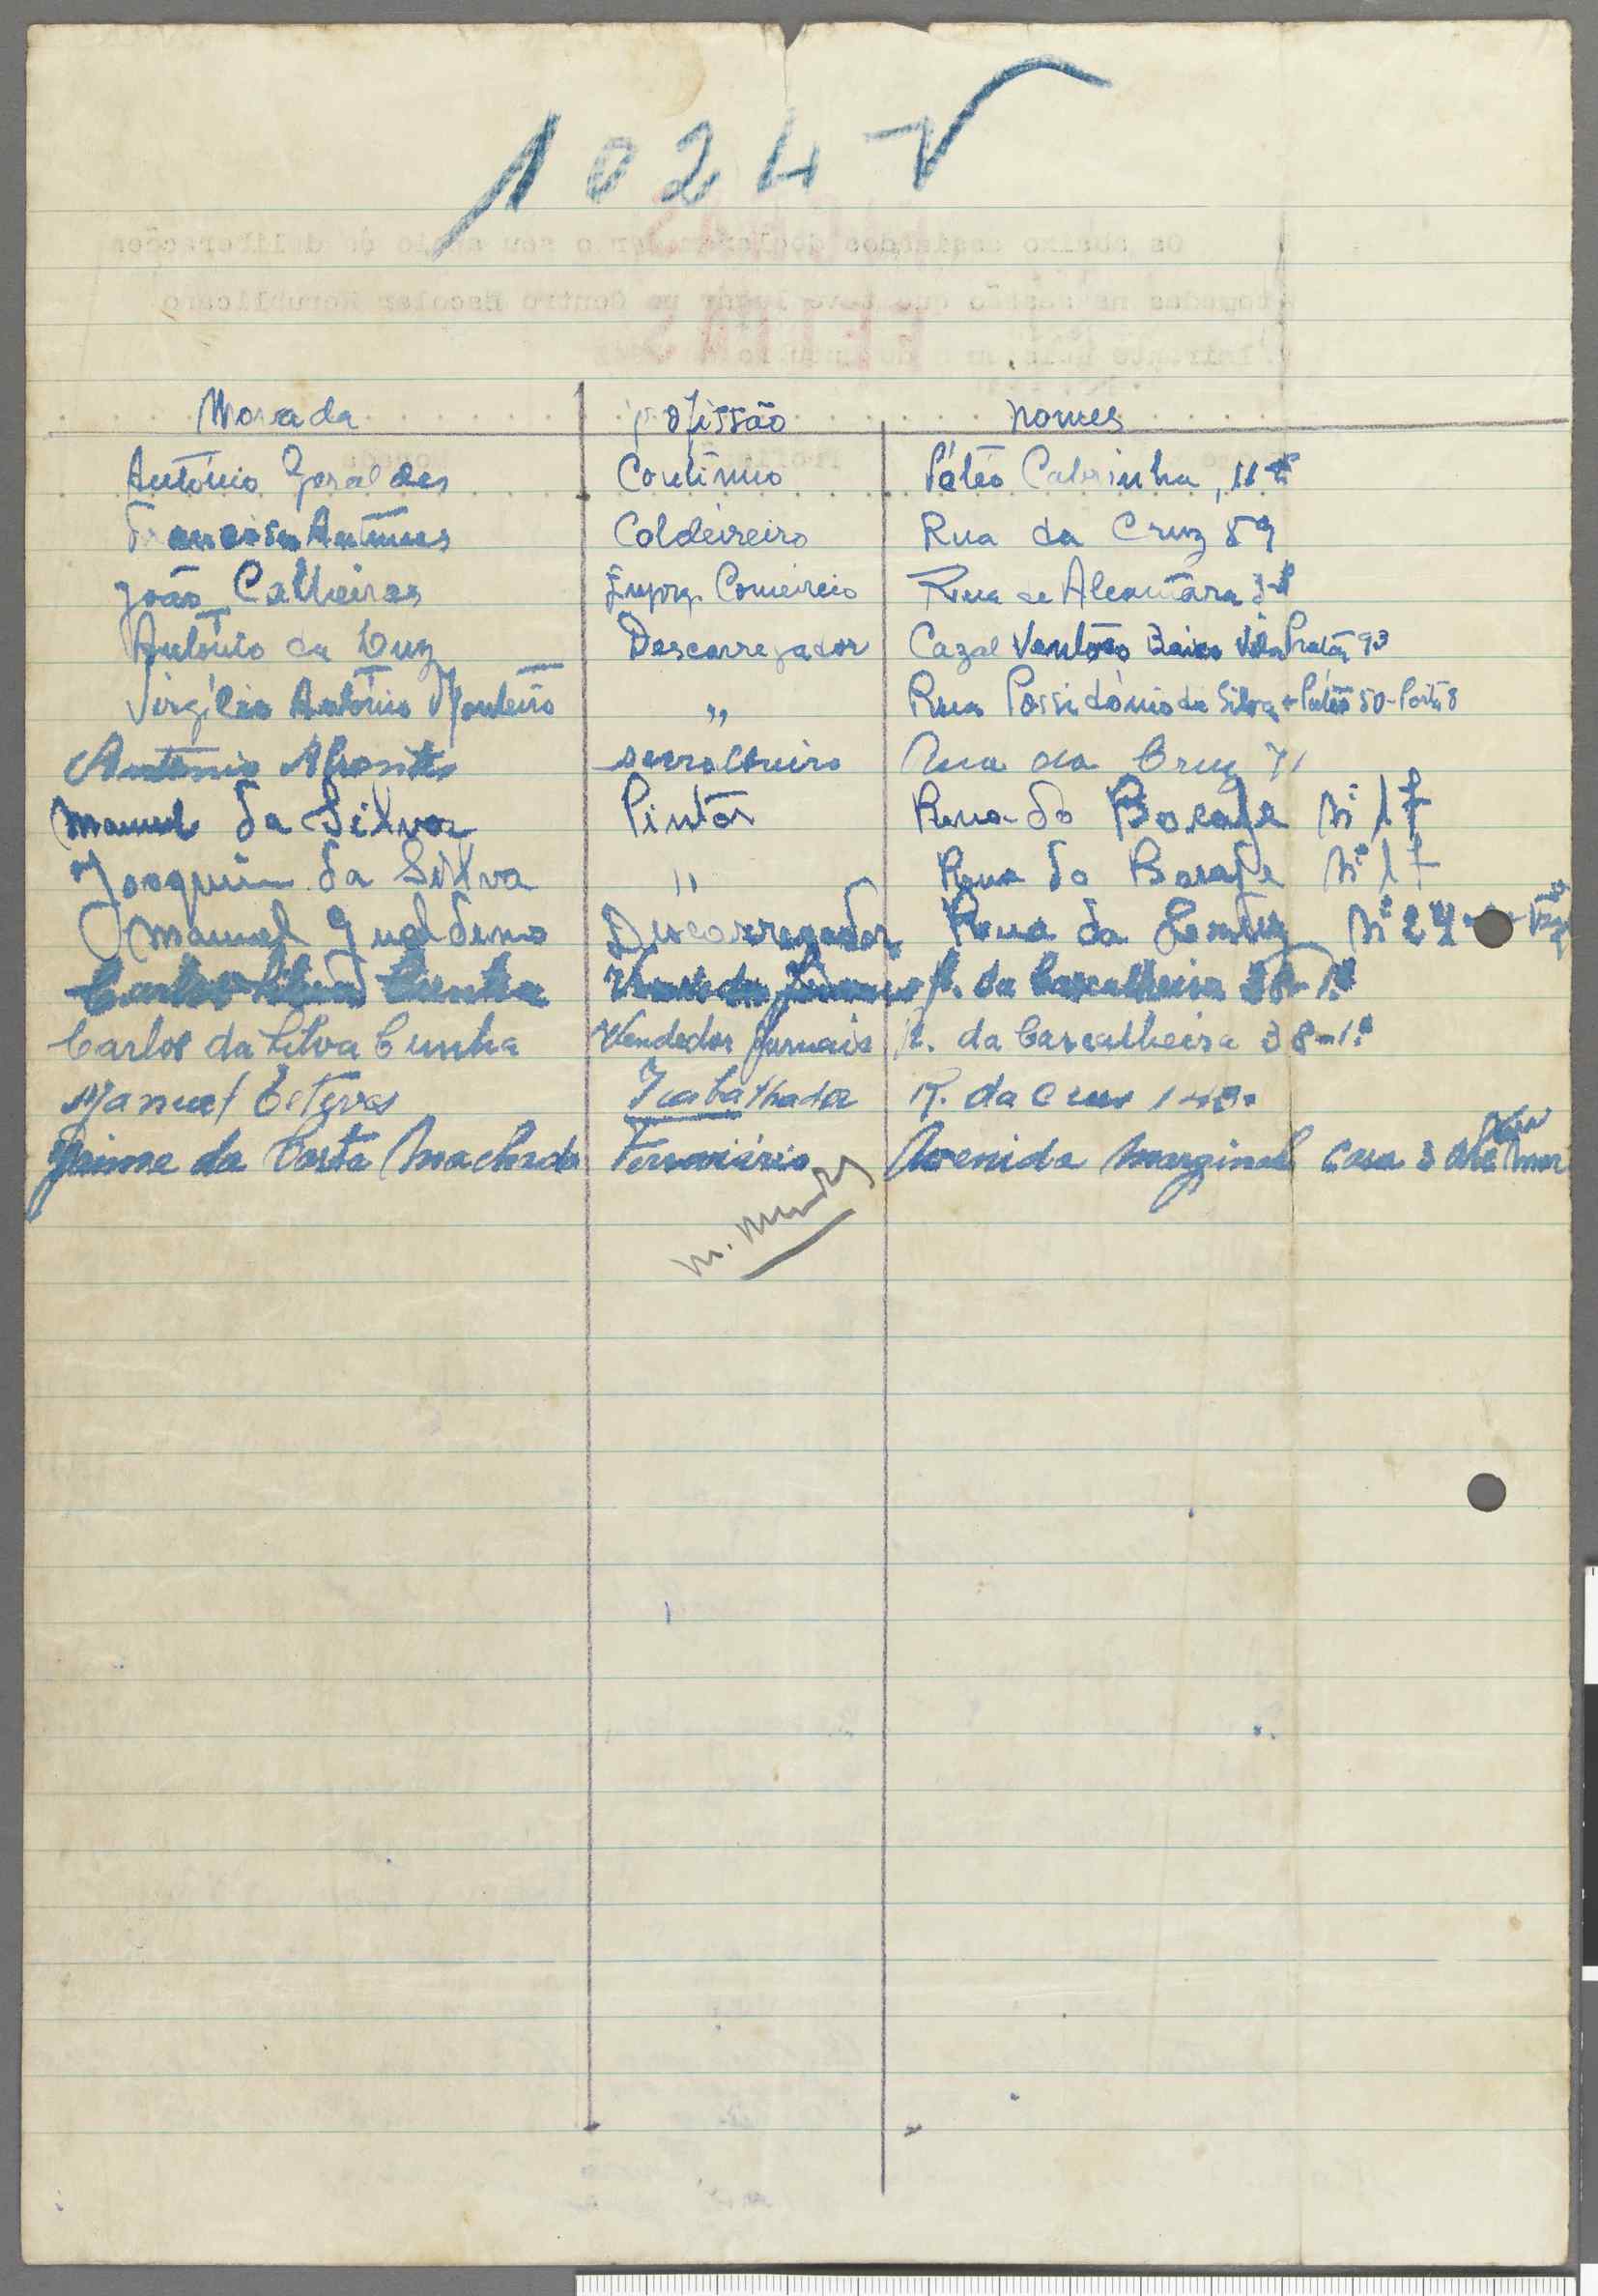 1024 V
Morada profissão nomes
António Geraldes Contínuo Páteo Cabrinha, 11
Francisco Antunes Coldeireiro Rua da Cruz 89
João Calheiros Empreg. Comércio Rua de Alcantâra
António da Luz Descarregador Cazal Ventôzo Baixo Vila 93
Virgílio António Monteiro " Rua Possidónio da Silva Páteo 50-Porta 8
António serralheiro Rua da Cruz 71
Manuel da Silva Pintôr Rua do Bocage Nº 17
Joaquim da Silva " Rua do Bocage Nº 17
Manuel Gualdino Discarregador Rua da Nº 24
Carlos Silva Cunha R. da Cascalheira 38-1º
Carlos da Silva Cunha Vendedor Jornais R. da Cascalheira 38-1º
Manuel Esteves Trabalhador R. da Cruz
Jaime da Costa Machado Ferroviário Avenida Marginal Casa 3